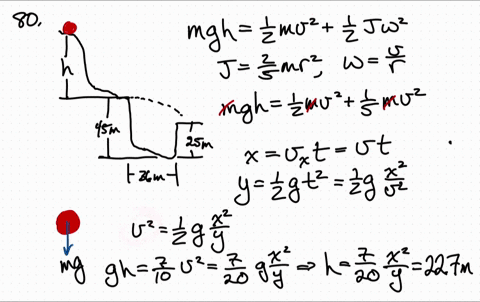 80.
mgh = ½mv² + ½Jω²
J = ⅖mr², ω = v/r
h
mgh = ½mv² + ⅕mv²
45m
25m
x = vₓt = vt
36m
y = ½gt² = ½g x²/v²
v² = ½g x²/y
mg
gh = 7/10 v² = 7/20 g x²/y ⇒ h = 7/20 x²/y = 22.7m